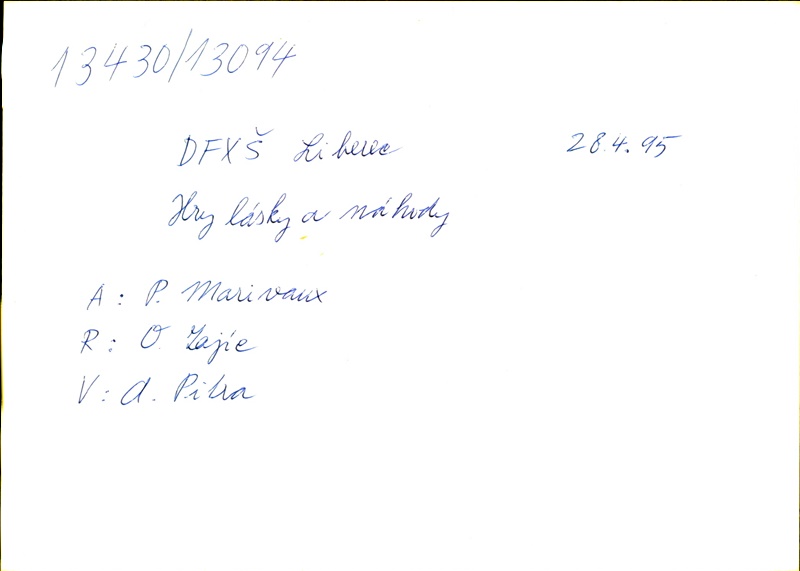 13430/13094
DFXŠ Liberec 28.4.95
Hry lásky a náhody
A: P. Marivaux
R: O. Zajíc
V: A. Pitra